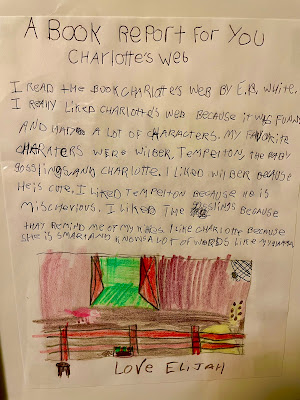 A Book Report for You
Charlotte's Web
I read the book Charlotte's Web by E.B. White.
I really liked Charlotte's Web because it was funny
and had a lot of characters. My favorite
charaters were Wilber, Tempelton, the baby
gosslings, and Charlotte. I liked Wilber because
he is cute. I liked Tempelton because he is
mischevious. I liked the gosslings because
that remind me of my I like Charlotte because
she is smart and knows a lot of words like my mama.
Love Elijah